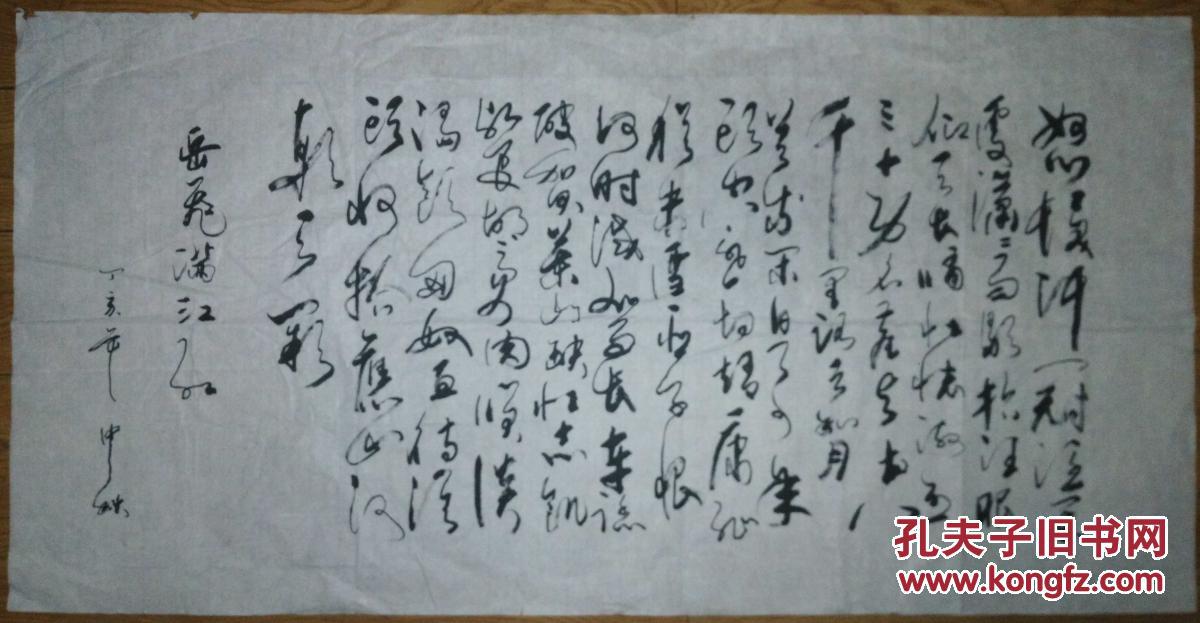 怒发冲冠凭阑
处潇潇雨歇抬望眼
仰天长啸壮怀激烈
三十功名尘与土八
千里路云和月
莫等闲白了少年
头空悲切靖康耻
犹未雪臣子恨
何时灭驾长车踏
破贺兰山缺壮志饥
餐胡虏肉笑谈
渴饮匈奴血待从
头收拾旧山河
朝天阙
岳飞满江红
丁亥年
孔夫子旧书网
www.kongfz.com